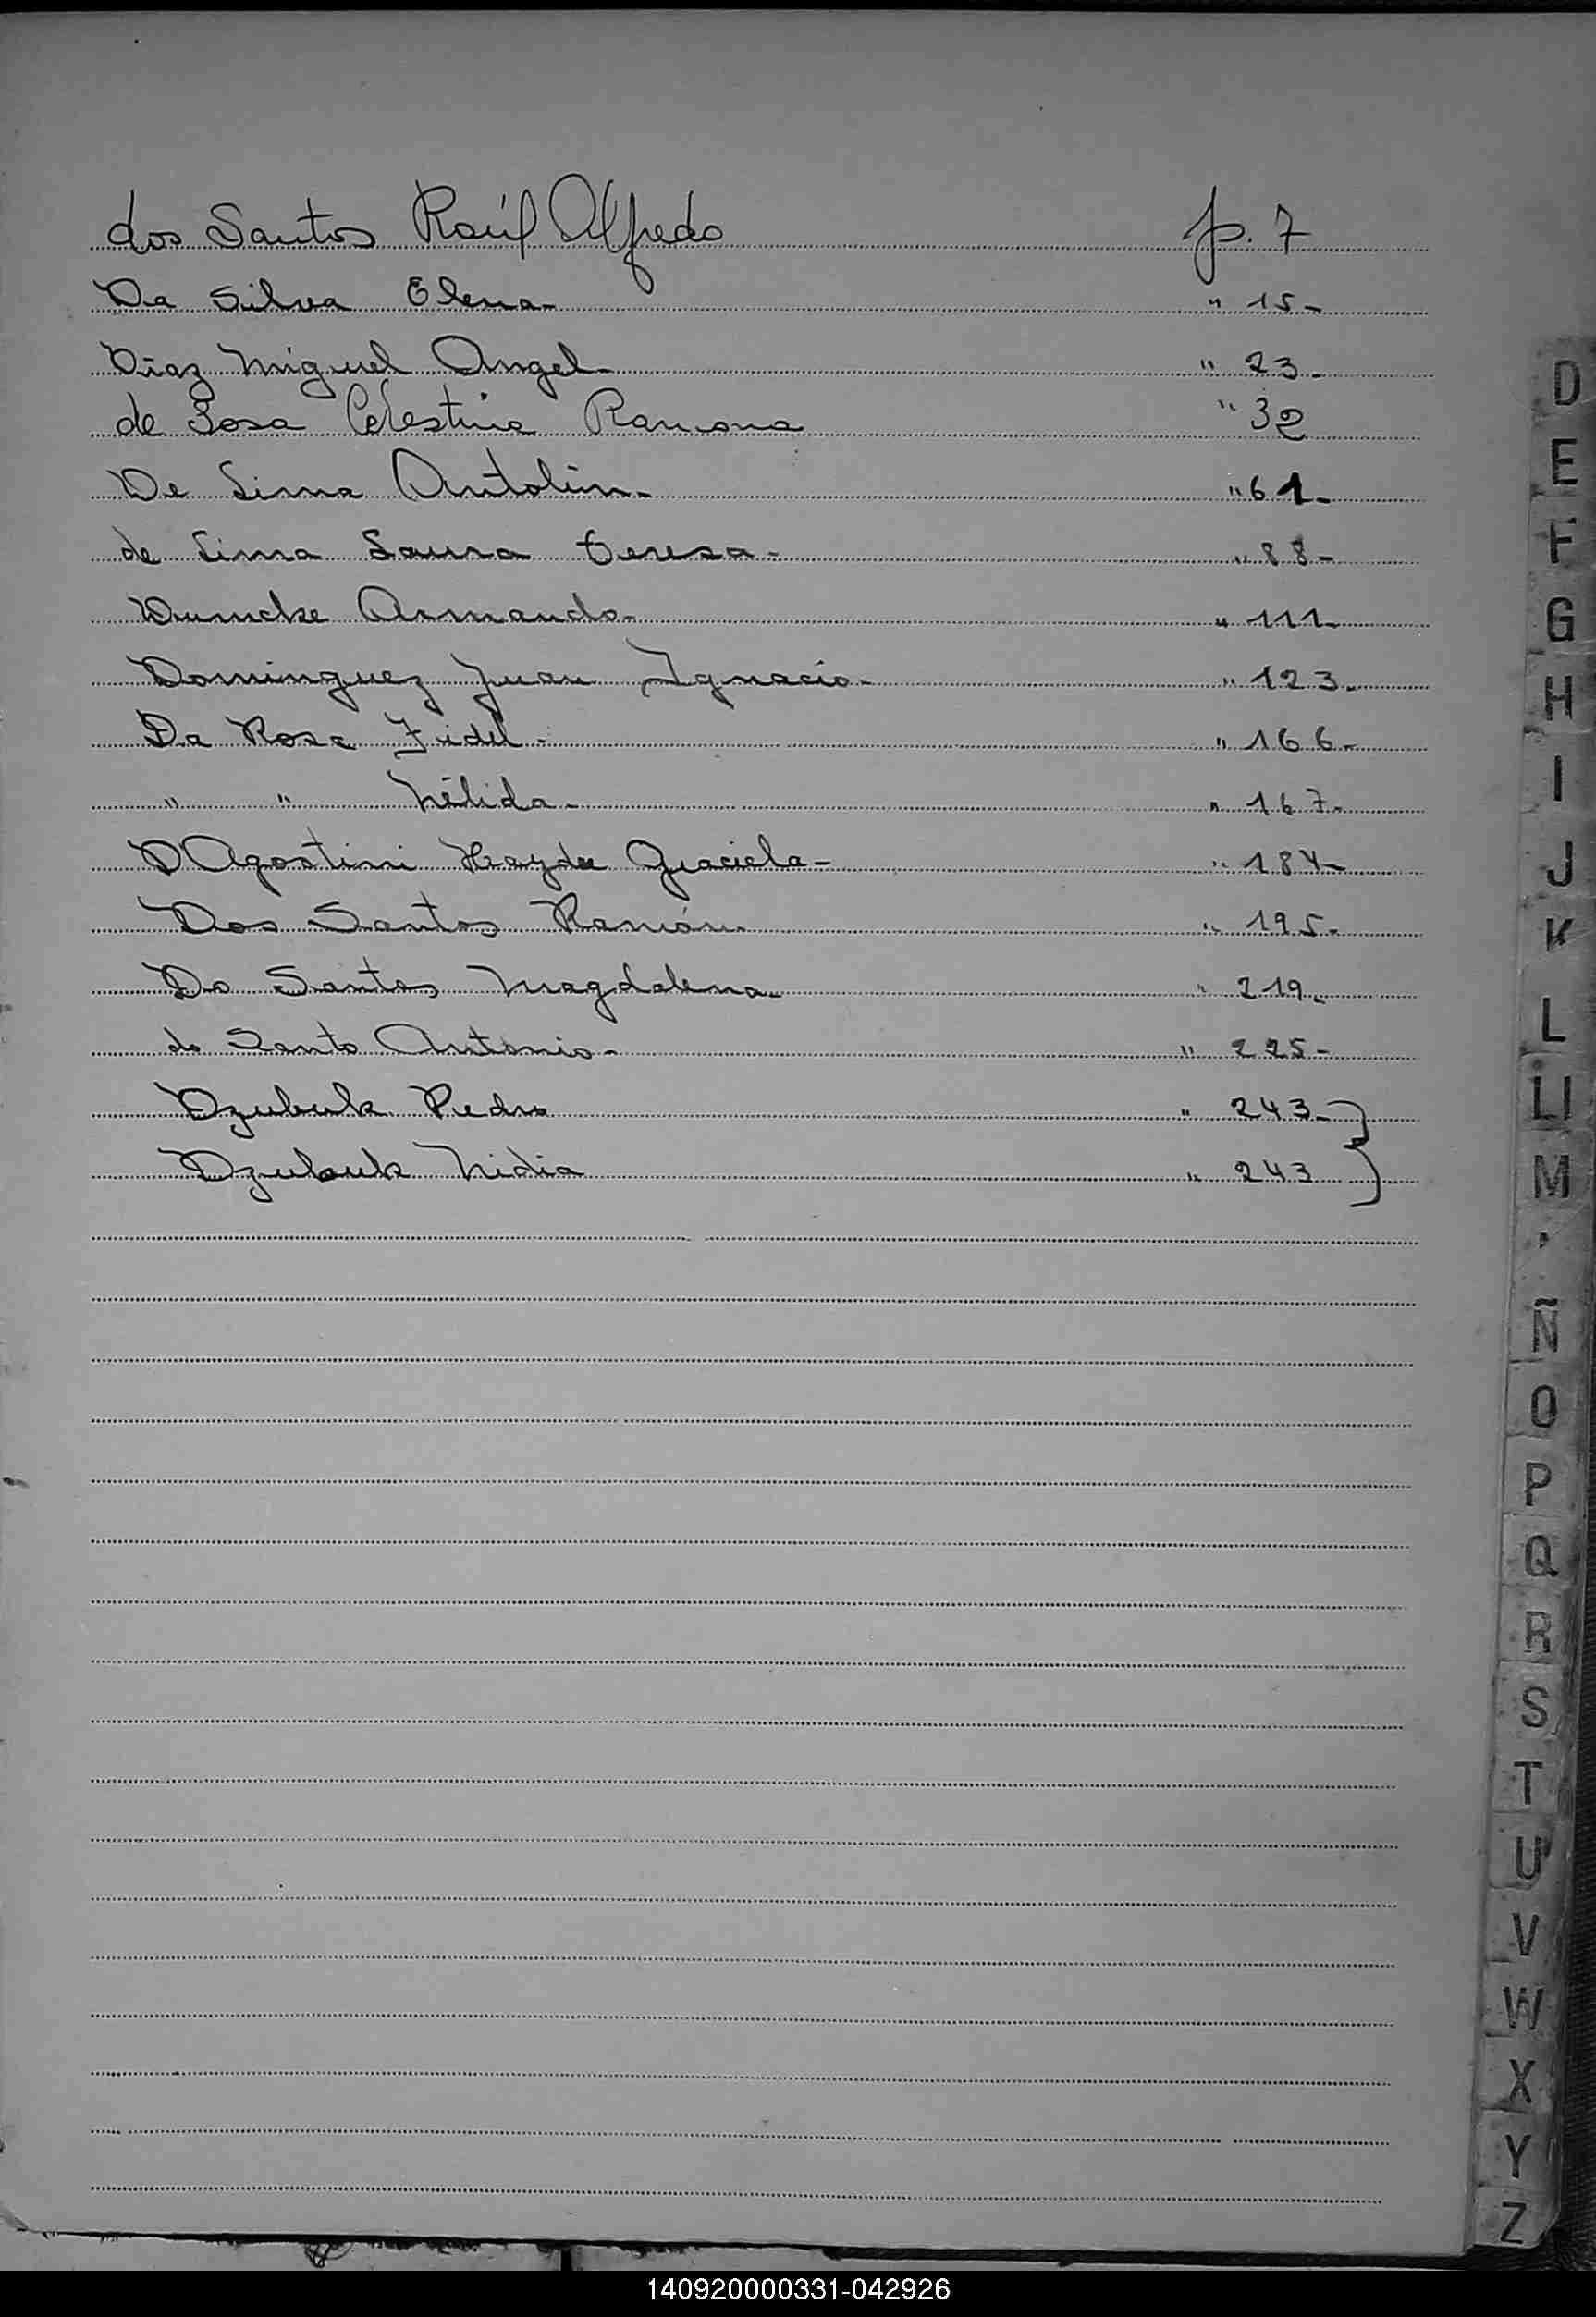 dos Santos Raúl Alfredo p. 7
Da Silva Elena- " 15-
Diaz Miguel Angel- " 23-
de Sosa Celestina Ramona " 32
De Lima Antolín- " 61-
de Lima Laura Teresa- " 88-
Dumcke Armando- " 111-
Dominguez Juan Ignacio- " 123-
Da Rosa Fidel- " 166-
" " Nélida- " 167-
D Agostini Haydee Graciela- " 184-
Dos Santos Ramón- " 195-
Do Santos Magdalena- " 219-
do Santo Antonio- " 225-
Dzubuk Pedro " 243-}
Dzubuk Nidia " 243 }
D
E
F
G
H
I
J
K
L
Ll
M
Ñ
O
P
Q
R
S
T
U
V
W
X
Y
Z
140920000331-042926